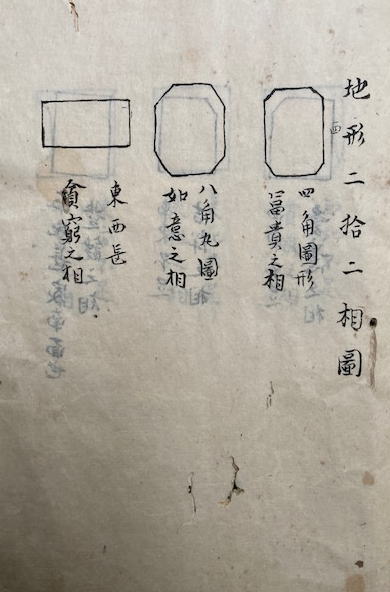 地形二拾二相圖
西
四角圖形
冨貴之相
八角九圖
如意之相
東西長
貧窮之相